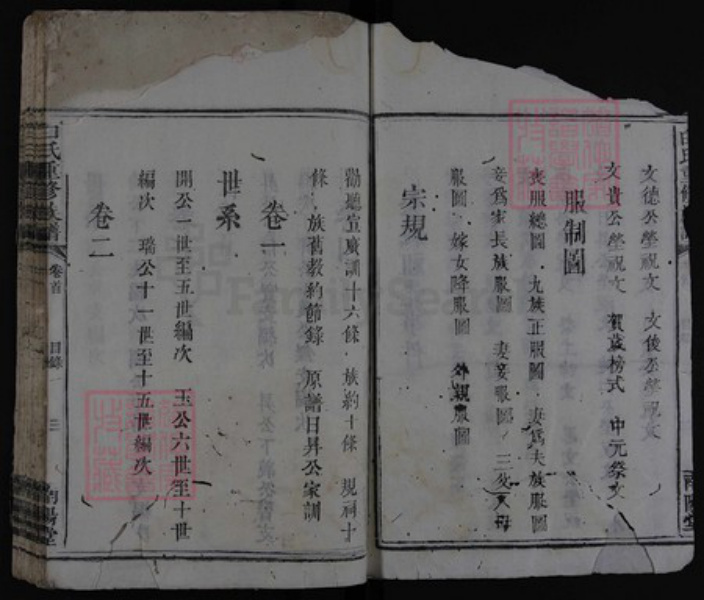 文德公塋祝文 文後公塋祝文
文貴公塋祝文 賀葢榜式 中元祭文
服制圖
喪服總圖 九族正服圖 妻爲夫族服圖
妾爲家長族服圖 妻妾服圖 三父八母
服圖 嫁女降服圖 外親服圖
宗規
勸聽宣廣訓十六條 族約十條 規祠十
條 族舊穀約節錄 原譜日昇公家訓
卷一
世系
開公一世至五世編次 玉公六世至十世
編次 瑞公十一世至十五世編次
卷二
氏重修族譜
卷首
目錄
三
南陽堂